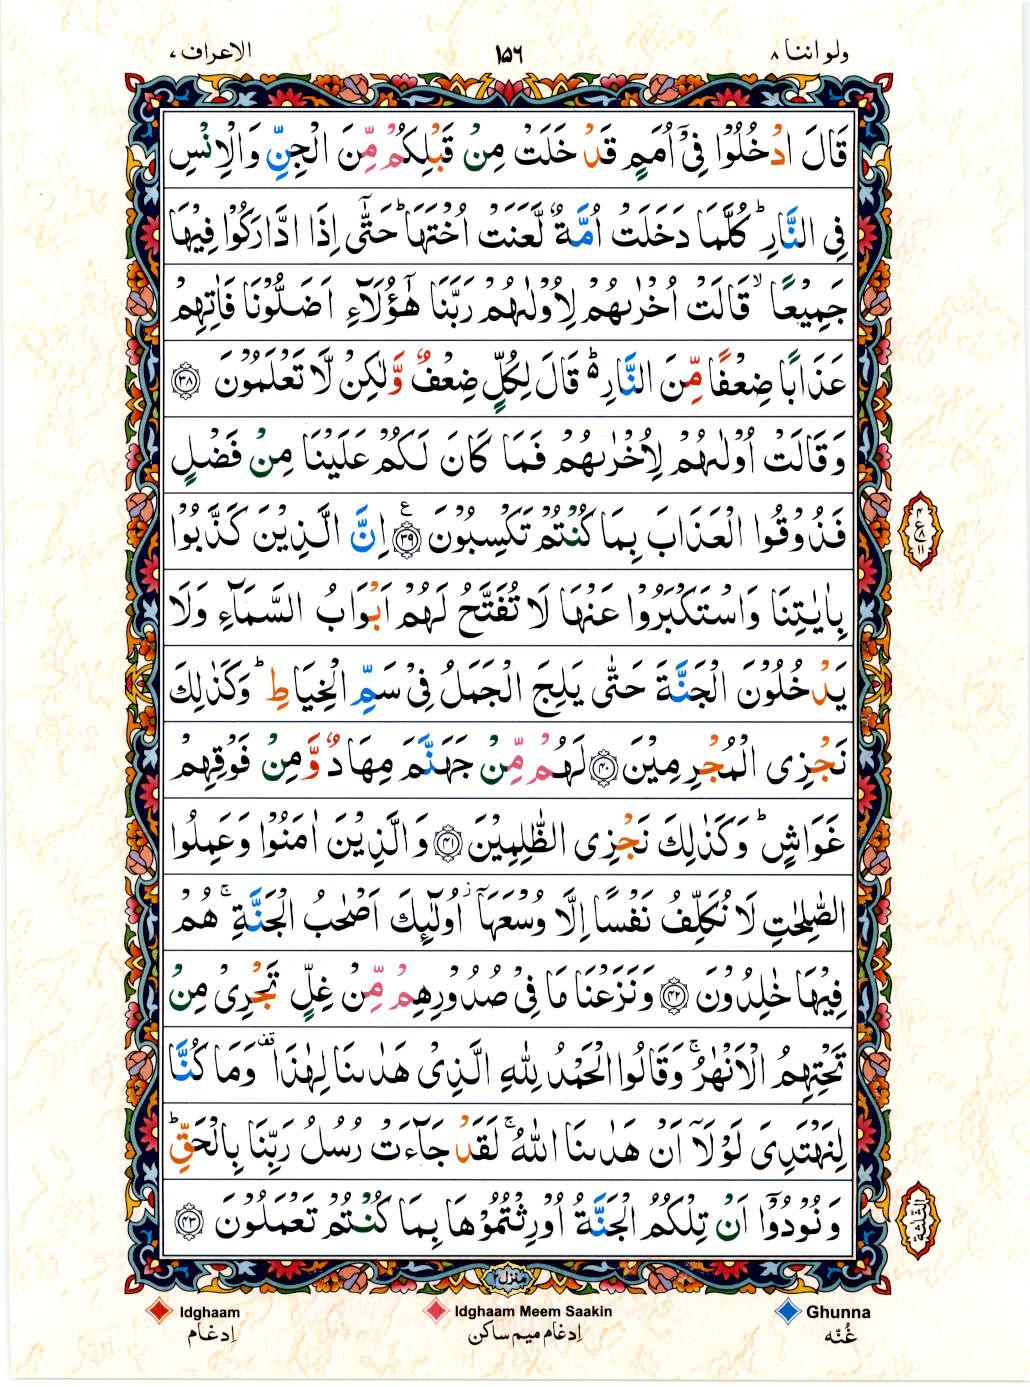 ولو اننا ۸
۱۵۶
الاعراف ۷
قَالَ ادْخُلُوْا فِىْۤ اُمَمٍ قَدْ خَلَتْ مِنْ قَبْلِكُمْ مِّنَ الْجِنِّ وَالْاِنْسِ
فِى النَّارِ ؕ كُلَّمَا دَخَلَتْ اُمَّةٌ لَّعَنَتْ اُخْتَهَا ؕ حَتّٰۤى اِذَا ادَّارَكُوْا فِيْهَا
جَمِيْعًا ۙ قَالَتْ اُخْرٰىهُمْ لِاُوْلٰىهُمْ رَبَّنَا هٰۤؤُلَآءِ اَضَلُّوْنَا فَاٰتِهِمْ
عَذَابًا ضِعْفًا مِّنَ النَّارِ ؕ۬ قَالَ لِكُلٍّ ضِعْفٌ وَّلٰكِنْ لَّا تَعْلَمُوْنَ ۳۸
وَقَالَتْ اُوْلٰىهُمْ لِاُخْرٰىهُمْ فَمَا كَانَ لَكُمْ عَلَيْنَا مِنْ فَضْلٍ
فَذُوْقُوا الْعَذَابَ بِمَا كُنْتُمْ تَكْسِبُوْنَ ۳۹ ع اِنَّ الَّذِيْنَ كَذَّبُوْا
بِاٰيٰتِنَا وَاسْتَكْبَرُوْا عَنْهَا لَا تُفَتَّحُ لَهُمْ اَبْوَابُ السَّمَآءِ وَلَا
يَدْخُلُوْنَ الْجَنَّةَ حَتّٰى يَلِجَ الْجَمَلُ فِىْ سَمِّ الْخِيَاطِ ؕ وَكَذٰلِكَ
نَجْزِى الْمُجْرِمِيْنَ ۴۰ لَهُمْ مِّنْ جَهَنَّمَ مِهَادٌ وَّمِنْ فَوْقِهِمْ
غَوَاشٍ ؕ وَكَذٰلِكَ نَجْزِى الظّٰلِمِيْنَ ۴۱ وَالَّذِيْنَ اٰمَنُوْا وَعَمِلُوا
الصّٰلِحٰتِ لَا نُكَلِّفُ نَفْسًا اِلَّا وُسْعَهَاۤ ؗ اُولٰٓئِكَ اَصْحٰبُ الْجَنَّةِ ۚ هُمْ
فِيْهَا خٰلِدُوْنَ ۴۲ وَنَزَعْنَا مَا فِىْ صُدُوْرِهِمْ مِّنْ غِلٍّ تَجْرِىْ مِنْ
تَحْتِهِمُ الْاَنْهٰرُ ۚ وَقَالُوا الْحَمْدُ لِلّٰهِ الَّذِىْ هَدٰىنَا لِهٰذَا قف وَمَا كُنَّا
لِنَهْتَدِىَ لَوْلَاۤ اَنْ هَدٰىنَا اللّٰهُ ۚ لَقَدْ جَآءَتْ رُسُلُ رَبِّنَا بِالْحَقِّ ؕ
وَنُوْدُوْۤا اَنْ تِلْكُمُ الْجَنَّةُ اُوْرِثْتُمُوْهَا بِمَا كُنْتُمْ تَعْمَلُوْنَ ۴۳
۴ ع ۸ ۱۱
الثلثة
منزل ۲
Idghaam
Idghaam Meem Saakin
Ghunna
اِدغام
اِدغام میم ساکن
غُنّه